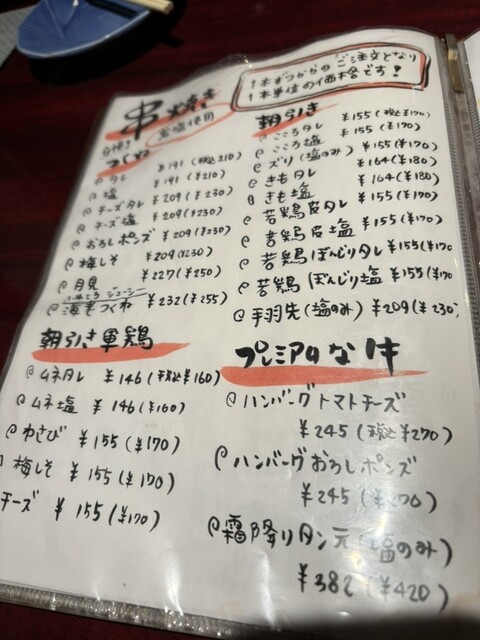 串焼き
1本ずつからのご注文となり
1本単位の価格です!
自慢
つくね
@ タレ ¥191(税込210)
@ 塩 ¥191(¥210)
@ チーズタレ ¥209(¥230)
@ チーズ塩 ¥209(¥230)
@ おろしポンズ ¥209(¥230)
@ 梅しそ ¥209(¥230)
@ 月見 ¥227(¥250)
ジューシー
@ 海老つくね ¥232(¥255)
朝引き軍鶏
@ ムネタレ ¥146(税込¥160)
@ ムネ塩 ¥146(¥160)
@ わさび ¥155(¥170)
梅しそ ¥155(¥170)
チーズ ¥155(¥170)
朝引き
@ こころタレ ¥155(税込¥170)
@ こころ塩 ¥155(¥170)
@ ズリ(塩のみ) ¥155(¥170)
@ きもタレ ¥164(¥180)
@ きも塩 ¥164(¥180)
@ 若鶏皮タレ ¥155(¥170)
@ 若鶏皮塩 ¥155(¥170)
@ 若鶏ぼんじりタレ ¥155(¥170
@ 若鶏ぼんじり塩 ¥155(¥170
@ 手羽先(塩のみ) ¥209(¥230)
プレミアムな串
@ ハンバーグトマトチーズ
¥245(税込¥270)
@ ハンバーグおろしポンズ
¥245(¥270)
@ 霜降りタン元(塩のみ)
¥382(¥420)